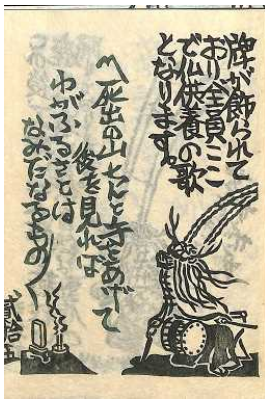 牌が飾られて
おり全員ここ
で仏供養の歌
となります。
〽死出の山
後を見れば
わがふるさとは
なみだなるもの
弐拾五